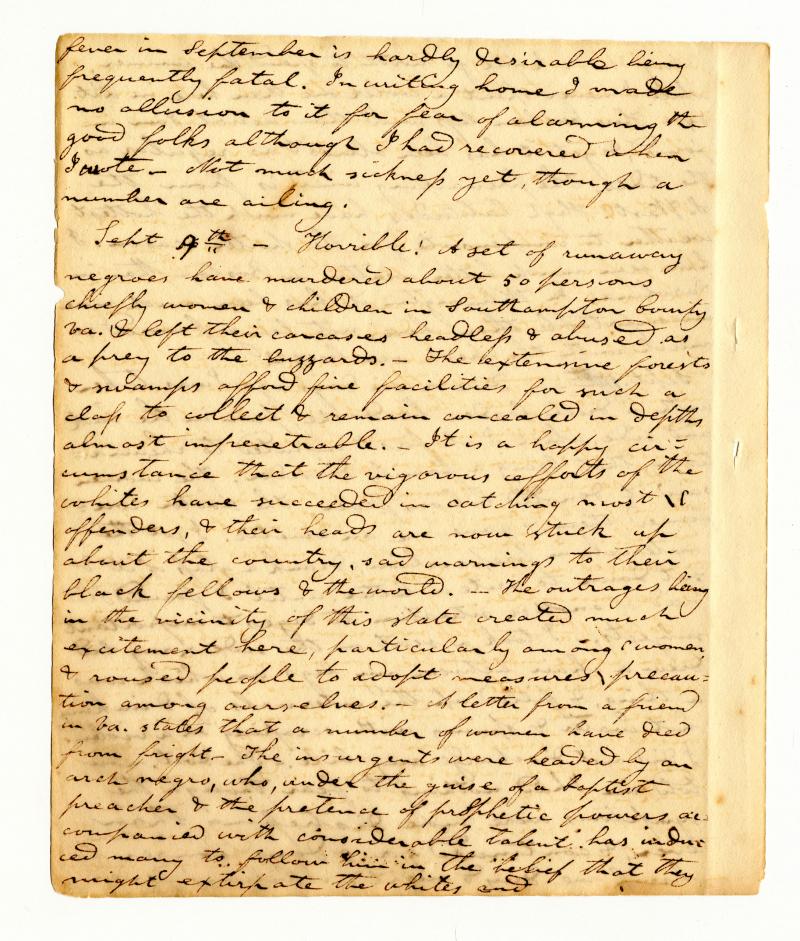 fever in September is hardly desirable being
frequently fatal. In writing home I made
no allusion to it for fear of alarming the
good folks although I had recovered when
I wrote – Not much sickness yet, though a
number are ailing.
Sept 9th – Horrible! A set of runaway
negroes have murdered about 50 persons
chiefly women & children in Southampton County
Va. & left their carcases headless & abused as
a prey to the buzzards. – The extensive forests
& swamps afford fine facilities for such a
class to collect & remain concealed in depths
almost impenetrable. – It is a happy cir=
cumstance that the vigorous efforts of the
whites have succeeded in catching most
offenders, & their heads are now stuck up
about the country, sad warnings to their
black fellows & the world. – The outrages being
in the vicinity of this state created much
excitement here, particularly among women,
& roused people to adopt measures precau=
tion among ourselves. – A letter from a friend
in Va. states that a number of women have died
from fright – The insurgents were headed by an
arch negro, who, under the guise of a baptist
preacher & the pretence of prophetic powers ac=
companied with considerable talent has indu=
ced many to follow him in the belief that they
might extirpate the whites and